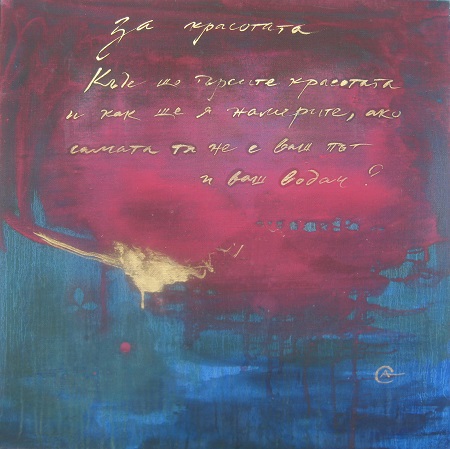 За красотата
Къде ще търсите красотата
и как ще я намерите, ако
самата тя не е ваш път
и ваш водач?